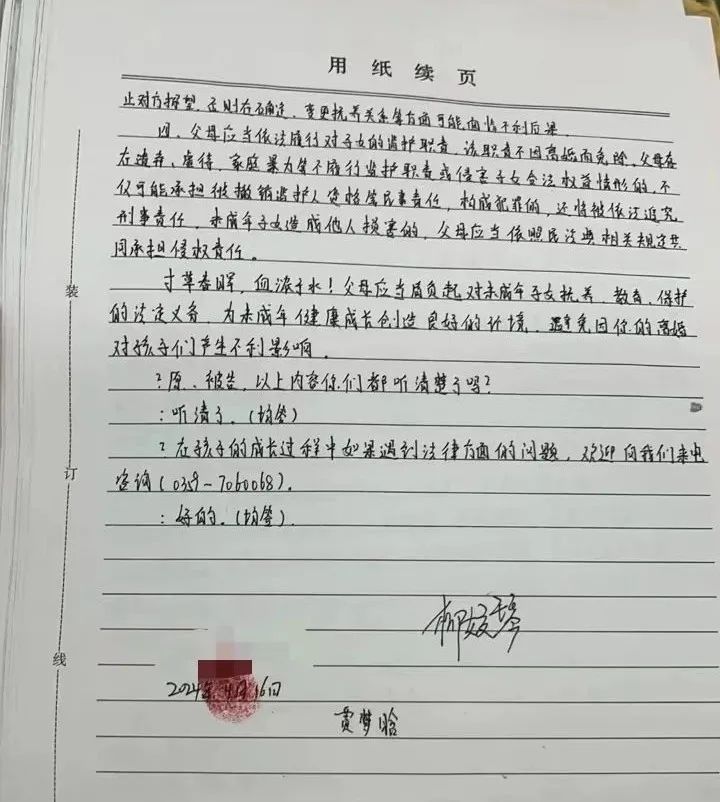 用纸续页
止对方探望，否则在确定、变更抚养关系等方面可能面临不利后果。
四、父母应当依法履行对子女的监护职责，该职责不因离婚而免除，父母存
在遗弃、虐待、家庭暴力等不履行监护职责或侵害子女合法权益情形的，不
仅可能承担被撤销监护人资格等民事责任，构成犯罪的，还将被依法追究
刑事责任，未成年子女造成他人损害的，父母应当依照民法典相关规定共
同承担侵权责任。
寸草春晖，血浓于水！父母应当肩负起对未成年子女抚养、教育、保护
的法定义务，为未成年健康成长创造良好的环境，避免因你的离婚
对孩子们产生不利影响。
？原、被告，以上内容你们都听清楚了吗？
：听清了。（均答）
？在孩子的成长过程中如果遇到法律方面的问题，欢迎向我们来电
咨询（0359-7060068）。
：好的。（均答）
2024年4月16日
贾梦晗
装
订
线